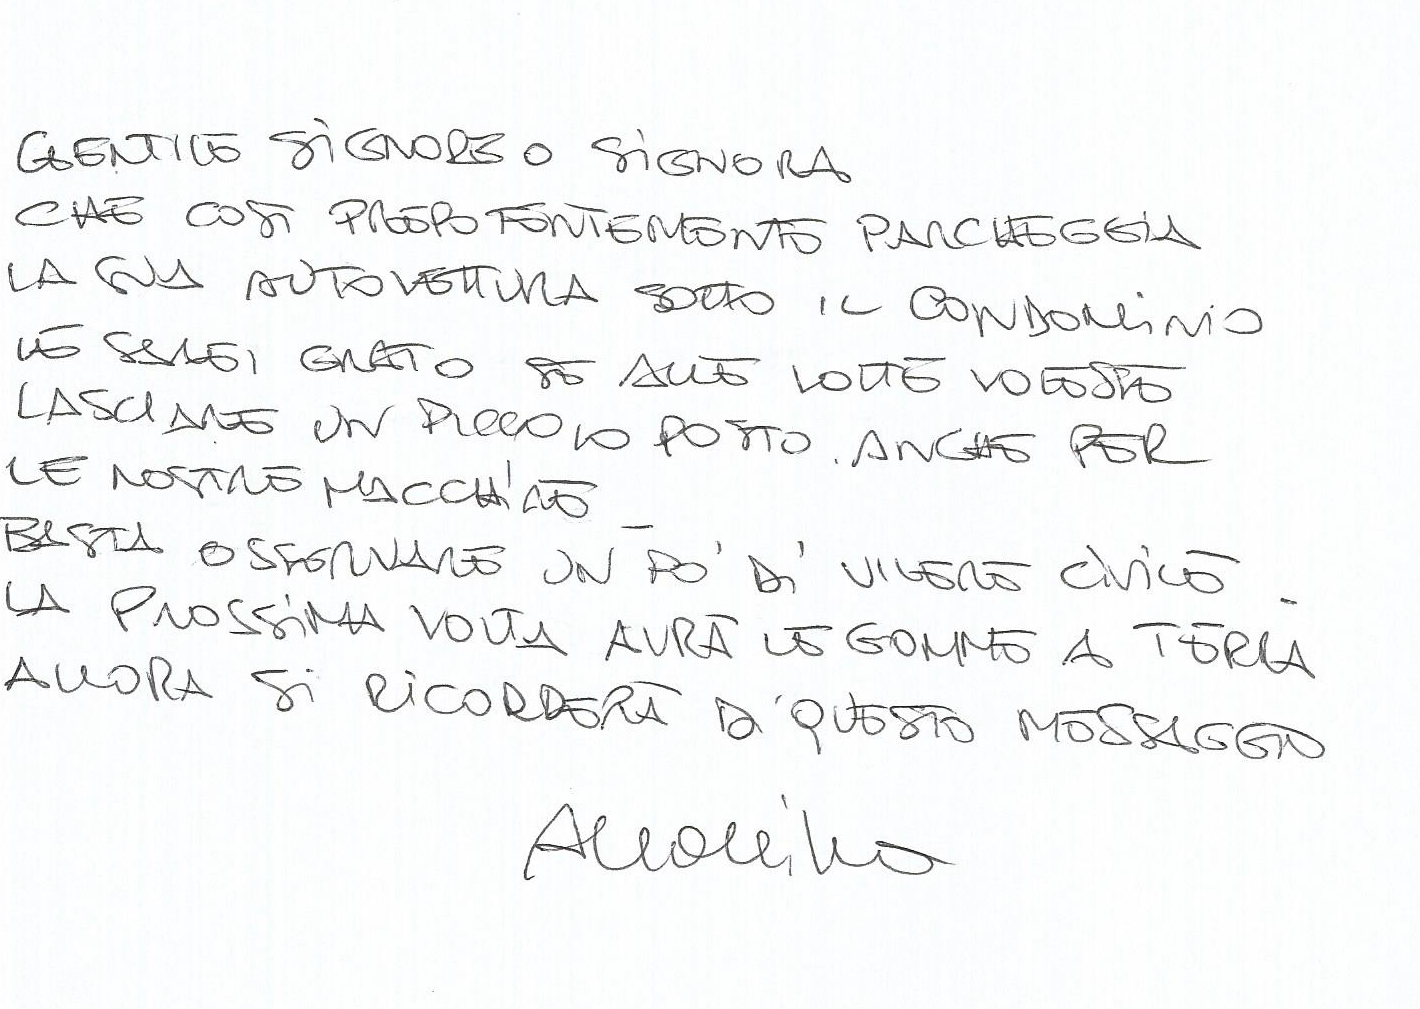 GENTILE SIGNORE O SIGNORA
CHE COSÌ PREPOTENTEMENTE PARCHEGGIA
LA SUA AUTOVETTURA SOTTO IL CONDOMINIO
LE SAREI GRATO SE ALLE VOLTE VOLESSE
LASCIARE UN PICCOLO POSTO. ANCHE PER
LE NOSTRE MACCHINE _
BASTA OSSERVARE UN PO' DI VIVERE CIVILE _
LA PROSSIMA VOLTA AVRÀ LE GOMME A TERRA
ALLORA SI RICORDERÀ DI QUESTO MESSAGGIO
Anonimo